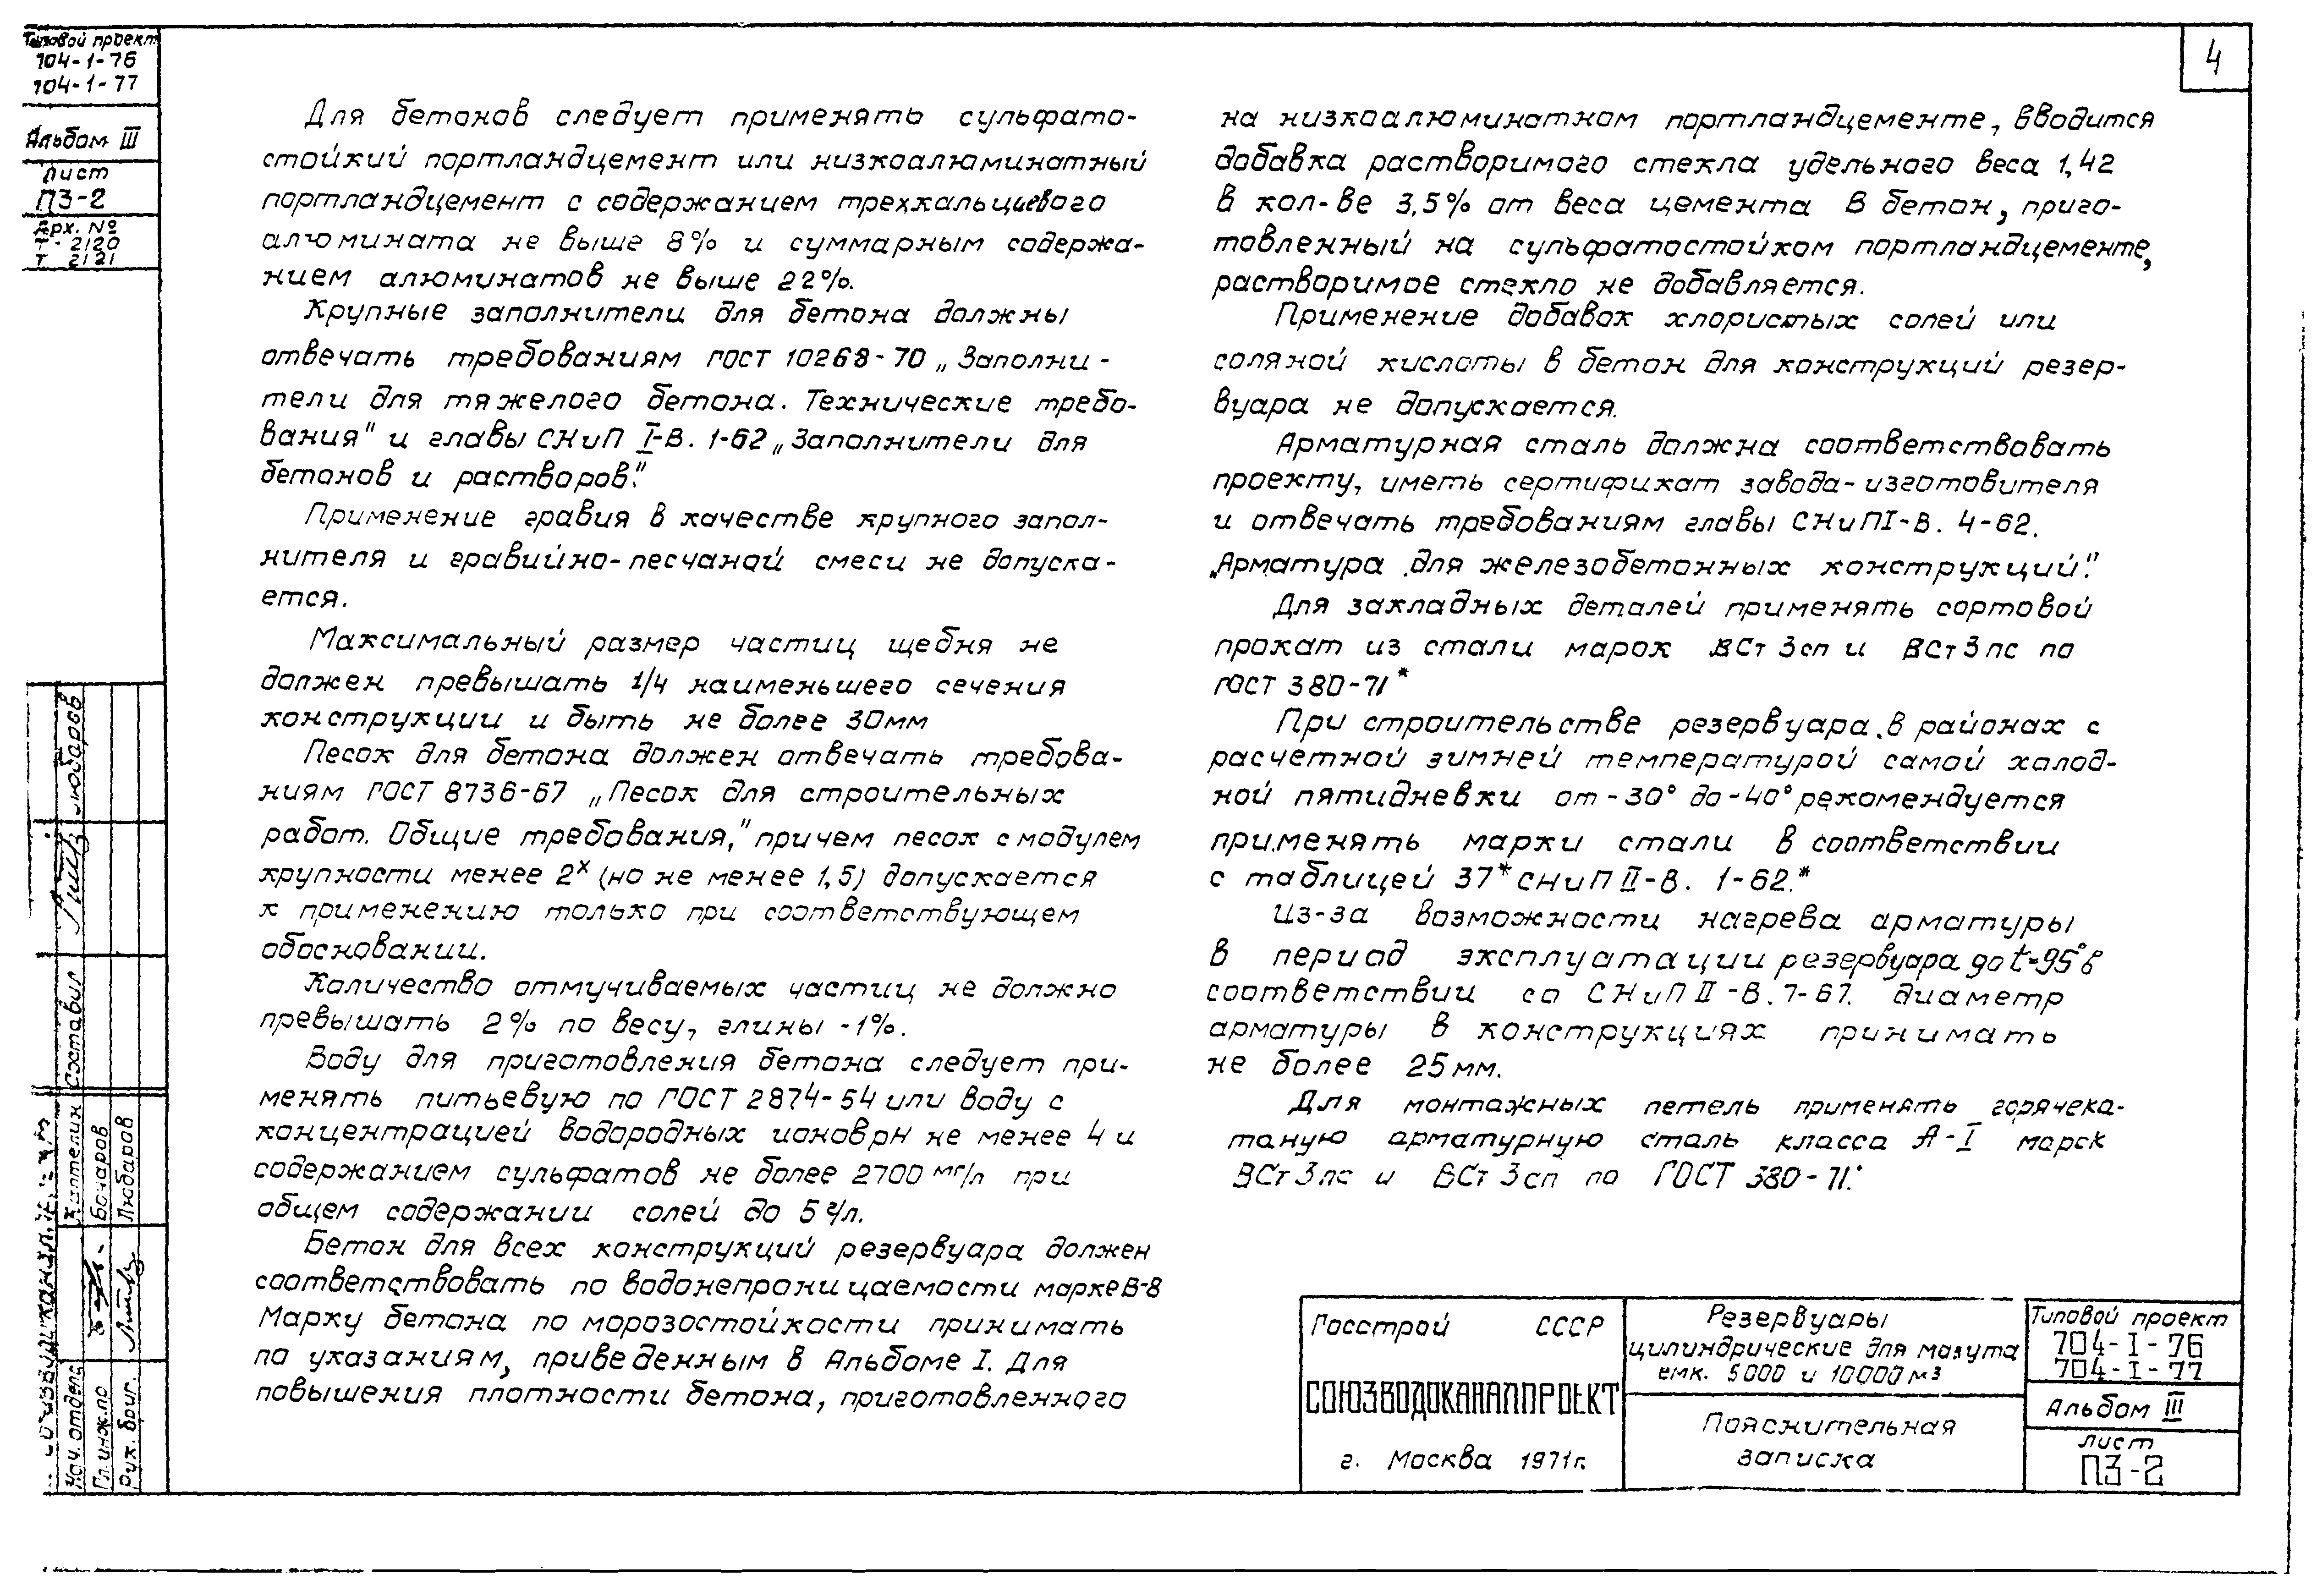 Типовой проект
704-1-76
704-1-77
Альбом III
Лист
ПЗ-2
Арх. №
Т-2120
Т 2121
4
Для бетонов следует применять сульфато-
стойкий портландцемент или низкоалюминатный
портландцемент с содержанием трехкальциевого
алюмината не выше 8% и суммарным содержа-
нием алюминатов не выше 22%.
Крупные заполнители для бетона должны
отвечать требованиям ГОСТ 10268-70 „Заполни-
тели для тяжелого бетона. Технические требо-
вания" и главы СНиП I-В. 1-62 „Заполнители для
бетонов и растворов".
Применение гравия в качестве крупного запол-
нителя и гравийно-песчаной смеси не допуска-
ется.
Максимальный размер частиц щебня не
должен превышать 1/4 наименьшего сечения
конструкции и быть не более 30мм
Песок для бетона должен отвечать требова-
ниям ГОСТ 8736-67 „Песок для строительных
работ. Общие требования," причем песок с модулем
крупности менее 2х (но не менее 1,5) допускается
к применению только при соответствующем
обосновании.
Количество отмучиваемых частиц не должно
превышать 2% по весу, глины -1%.
Воду для приготовления бетона следует при-
менять питьевую по ГОСТ 2874-54 или воду с
концентрацией водородных ионов рН не менее 4 и
содержанием сульфатов не более 2700 мг/л при
общем содержании солей до 5 г/л.
Бетон для всех конструкций резервуара должен
соответствовать по водонепроницаемости марке В-8
Марку бетона по морозостойкости принимать
по указаниям, приведенным в Альбоме I. Для
повышения плотности бетона, приготовленного
на низкоалюминатном портландцементе, вводится
добавка растворимого стекла удельного веса 1,42
в кол-ве 3,5% от веса цемента В бетон, приго-
товленный на сульфатостойком портландцементе,
растворимое стекло не добавляется.
Применение добавок хлористых солей или
соляной кислоты в бетон для конструкций резер-
вуара не допускается.
Арматурная сталь должна соответствовать
проекту, иметь сертификат завода-изготовителя
и отвечать требованиям главы СНиП I-В. 4-62.
„Арматура для железобетонных конструкций".
Для закладных деталей применять сортовой
прокат из стали марок ВСт 3сп и ВСт 3пс по
ГОСТ 380-71*
При строительстве резервуара в районах с
расчетной зимней температурой самой холод-
ной пятидневки от -30° до -40° рекомендуется
применять марки стали в соответствии
с таблицей 37* СНиП II-В. 1-62.*
Из-за возможности нагрева арматуры
в период эксплуатации резервуара до t=95° в
соответствии со СНиП II-В.7-67. диаметр
арматуры в конструкциях принимать
не более 25мм.
Для монтажных петель применять горячека-
таную арматурную сталь класса А-I марок
ВСт 3пс и ВСт 3сп по ГОСТ 380-71.*
Госстрой СССР
СОЮЗВОДОКАНАЛПРОЕКТ
г. Москва 1971г.
Резервуары
цилиндрические для мазута
емк. 5000 и 10000м3
Пояснительная
записка
Типовой проект
704-I-76
704-I-77
Альбом III
Лист
ПЗ-2
Нач. отдела
Гл. инж. пр
Рук. бриг.
Бочаров
Любаров
Составил
Любаров